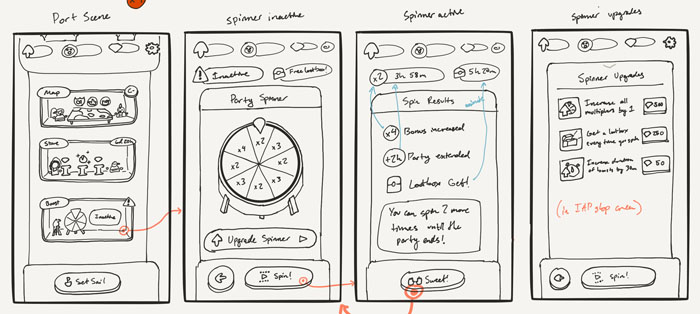 Port Scene
Map
Store
Boost
Inactive
Set Sail
Spinner inactive
Inactive
Free lootbox!
Party Spinner
x4
x2
x3
x2
x3
x2
x3
x2
Upgrade Spinner
Spin!
Spinner active
x2
3h 58m
5h 29m
Spin Results
animate
x4
Bonus increased
+2h
Party extended
Lootbox Get!
You can spin 2 more
times until the
party ends!
Sweet!
Spinner upgrades
Spinner Upgrades
Increase all
multipliers by 1
Get a lootbox
every time you spin
250
Increase duration
of boosts by 30m
50
(in IAP shop screen)
Spin!